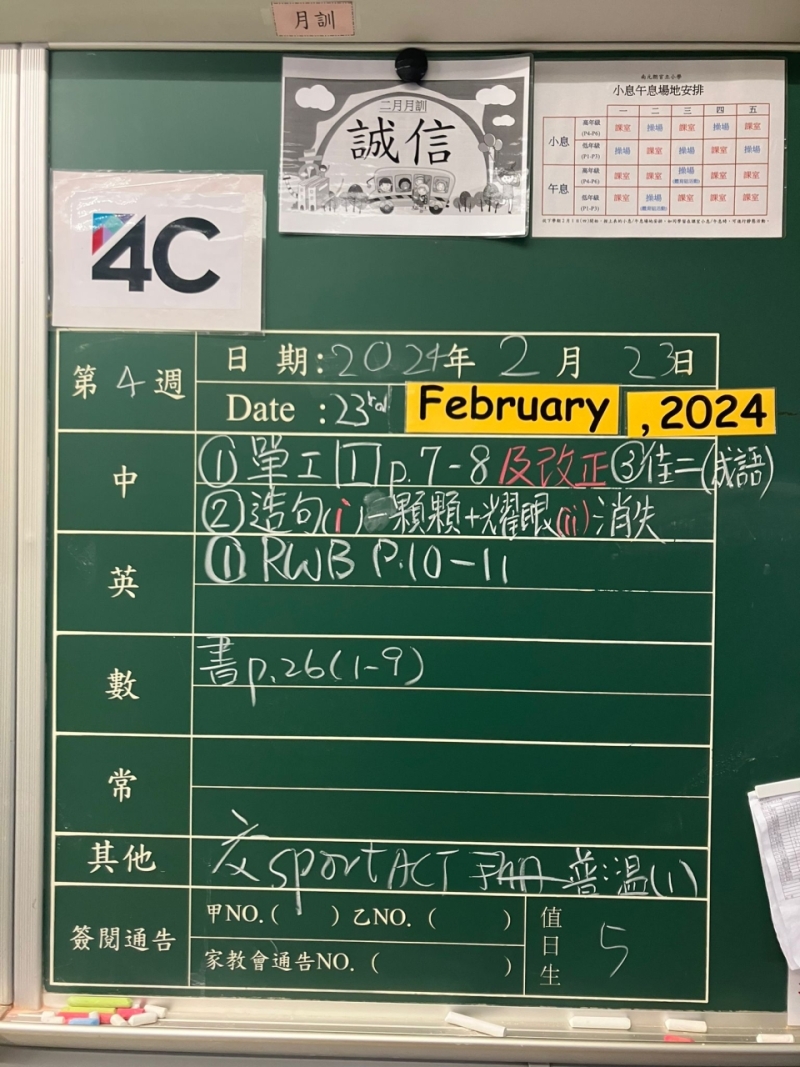 月訓
二月月訓
誠信
南元朗官立小學
小息午息場地安排
一 二 三 四 五
小息 高年級 (P4-P6) 課室 操場 課室 操場 課室
低年級 (P1-P3) 操場 課室 操場 課室 操場
午息 高年級 (P4-P6) 課室 課室 操場 課室 課室
低年級 (P1-P3) 課室 操場 課室 課室 課室
4C
第4週 日期:2024年2月23日
Date :23rd February , 2024
中 ①單工[工]p.7-8及改正③佳二(成語)
②造句(i)一顆顆+耀眼(ii)消失
英 ①RWB P.10-11
數 書p.26(1-9)
常
其他 交sport ACT 普:溫(1)
簽閱通告 甲NO.( ) 乙NO. ( )
家教會通告NO. ( )
值日生 5